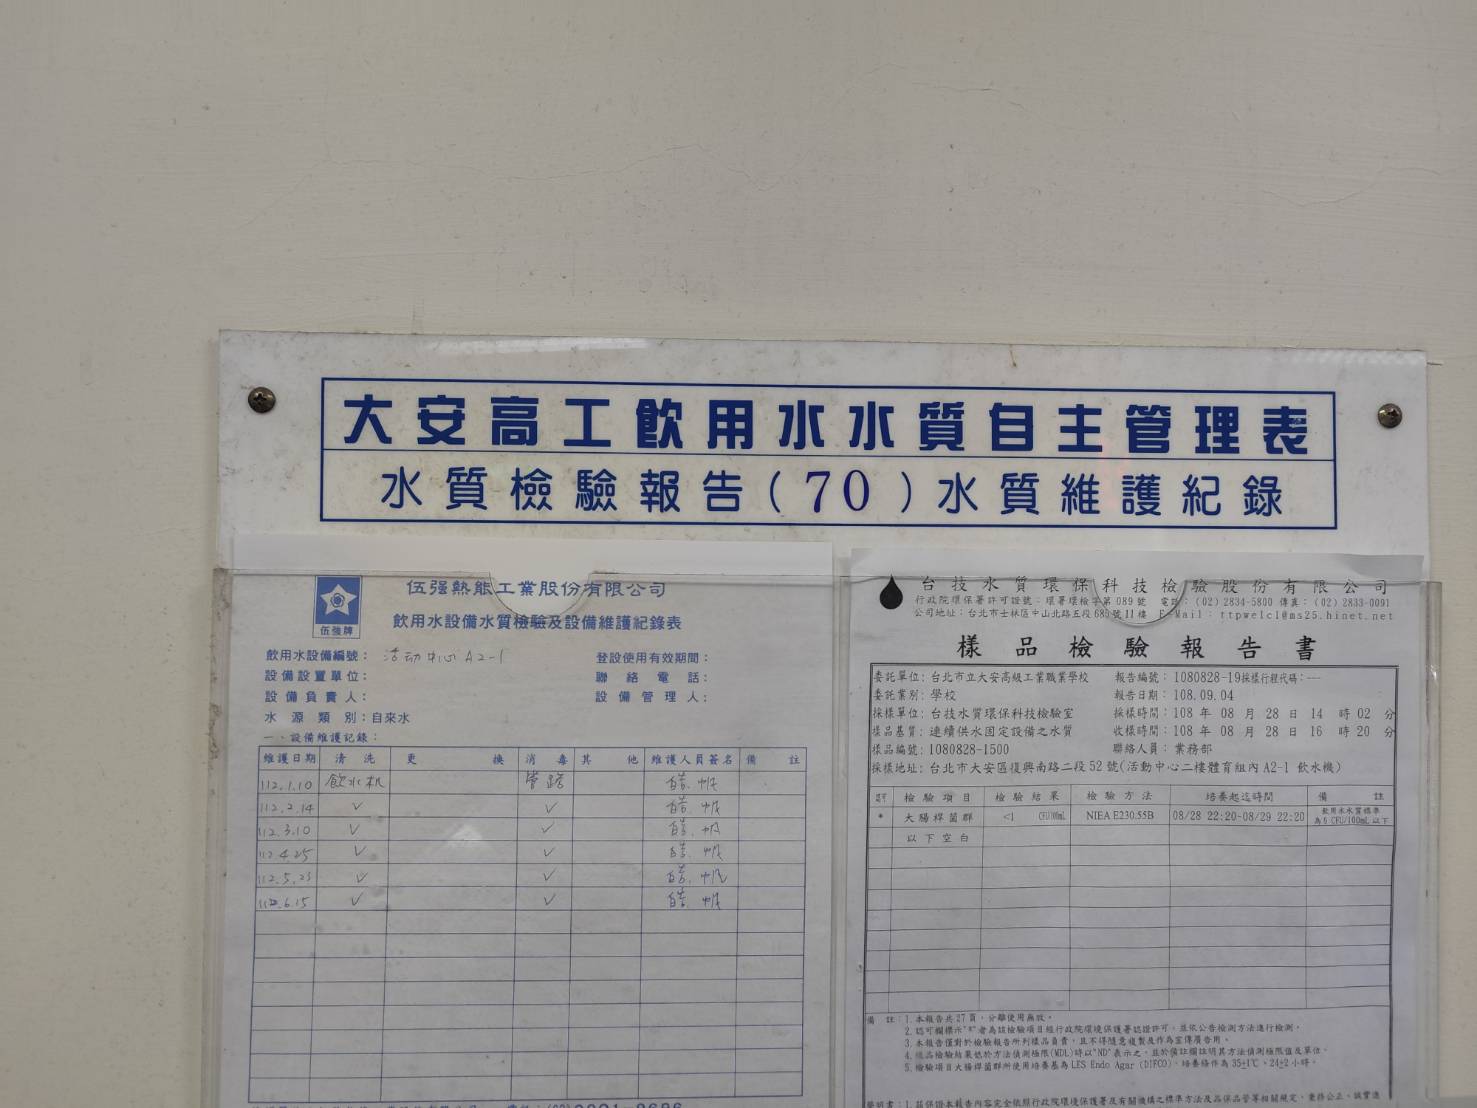 大安高工飲用水水質自主管理表
水質檢驗報告(70)水質維護紀錄
伍强熱能工業股份有限公司
伍強牌
飲用水設備水質檢驗及設備維護紀錄表
飲用水設備編號： 活动中心 A2-1 登設使用有效期間：
設備設置單位： 聯絡電話：
設備負責人： 設備管理人：
水源類別：自來水
一、設備維護記錄：
維護日期 清洗 更換 消毒 其他 維護人員簽名 備註
112.1.10 飲水机 管路
112.2.14 ✓ ✓
112.3.10 ✓ ✓
112.4.25 ✓ ✓
112.5.23 ✓ ✓
112.6.15 ✓ ✓
台技水質環保科技檢驗股份有限公司
行政院環保署許可證號：環署環檢字第 089 號 電話：(02) 2834-5800 傳真：(02) 2833-0091
公司地址：台北市士林區中山北路五段 689 號 11 樓 E-Mail：ttpwelc1@ms25.hinet.net
樣品檢驗報告書
委託單位：台北市立大安高級工業職業學校 報告編號：1080828-19採樣行程代碼：---
委託業別：學校 報告日期：108.09.04
採樣單位：台技水質環保科技檢驗室 採樣時間：108 年 08 月 28 日 14 時 02 分
樣品基質：連續供水固定設備之水質 收樣時間：108 年 08 月 28 日 16 時 20 分
樣品編號：1080828-1500 聯絡人員：業務部
採樣地址：台北市大安區復興南路二段 52 號(活動中心二樓體育組內 A2-1 飲水機)
認可 檢驗項目 檢驗結果 檢驗方法 培養起迄時間 備註
* 大腸桿菌群 <1 CFU/100mL NIEA E230.55B 08/28 22:20-08/29 22:20 飲用水水質標準為 6 CFU/100mL 以下
以下空白
備註：1. 本報告共 27 頁，分離使用無效。
2. 認可欄標示"*"者為該檢驗項目經行政院環境保護署認證許可，並依公告檢測方法進行檢測。
3. 本報告僅對於檢驗報告所列樣品負責，且不得隨意複製及作為宣傳廣告用。
4. 樣品檢驗結果低於方法偵測極限(MDL)時以"ND"表示之，並於備註欄註明其方法偵測極限值及單位。
5. 檢驗項目大腸桿菌群所使用培養基為 LES Endo Agar (DIFCO)，培養條件為 35±1℃、24±2 小時。
聲明書：1. 茲保證本報告內容完全依照行政院環境保護署及有關機構之標準方法及品保品管等相關規定，秉持公正、誠實進